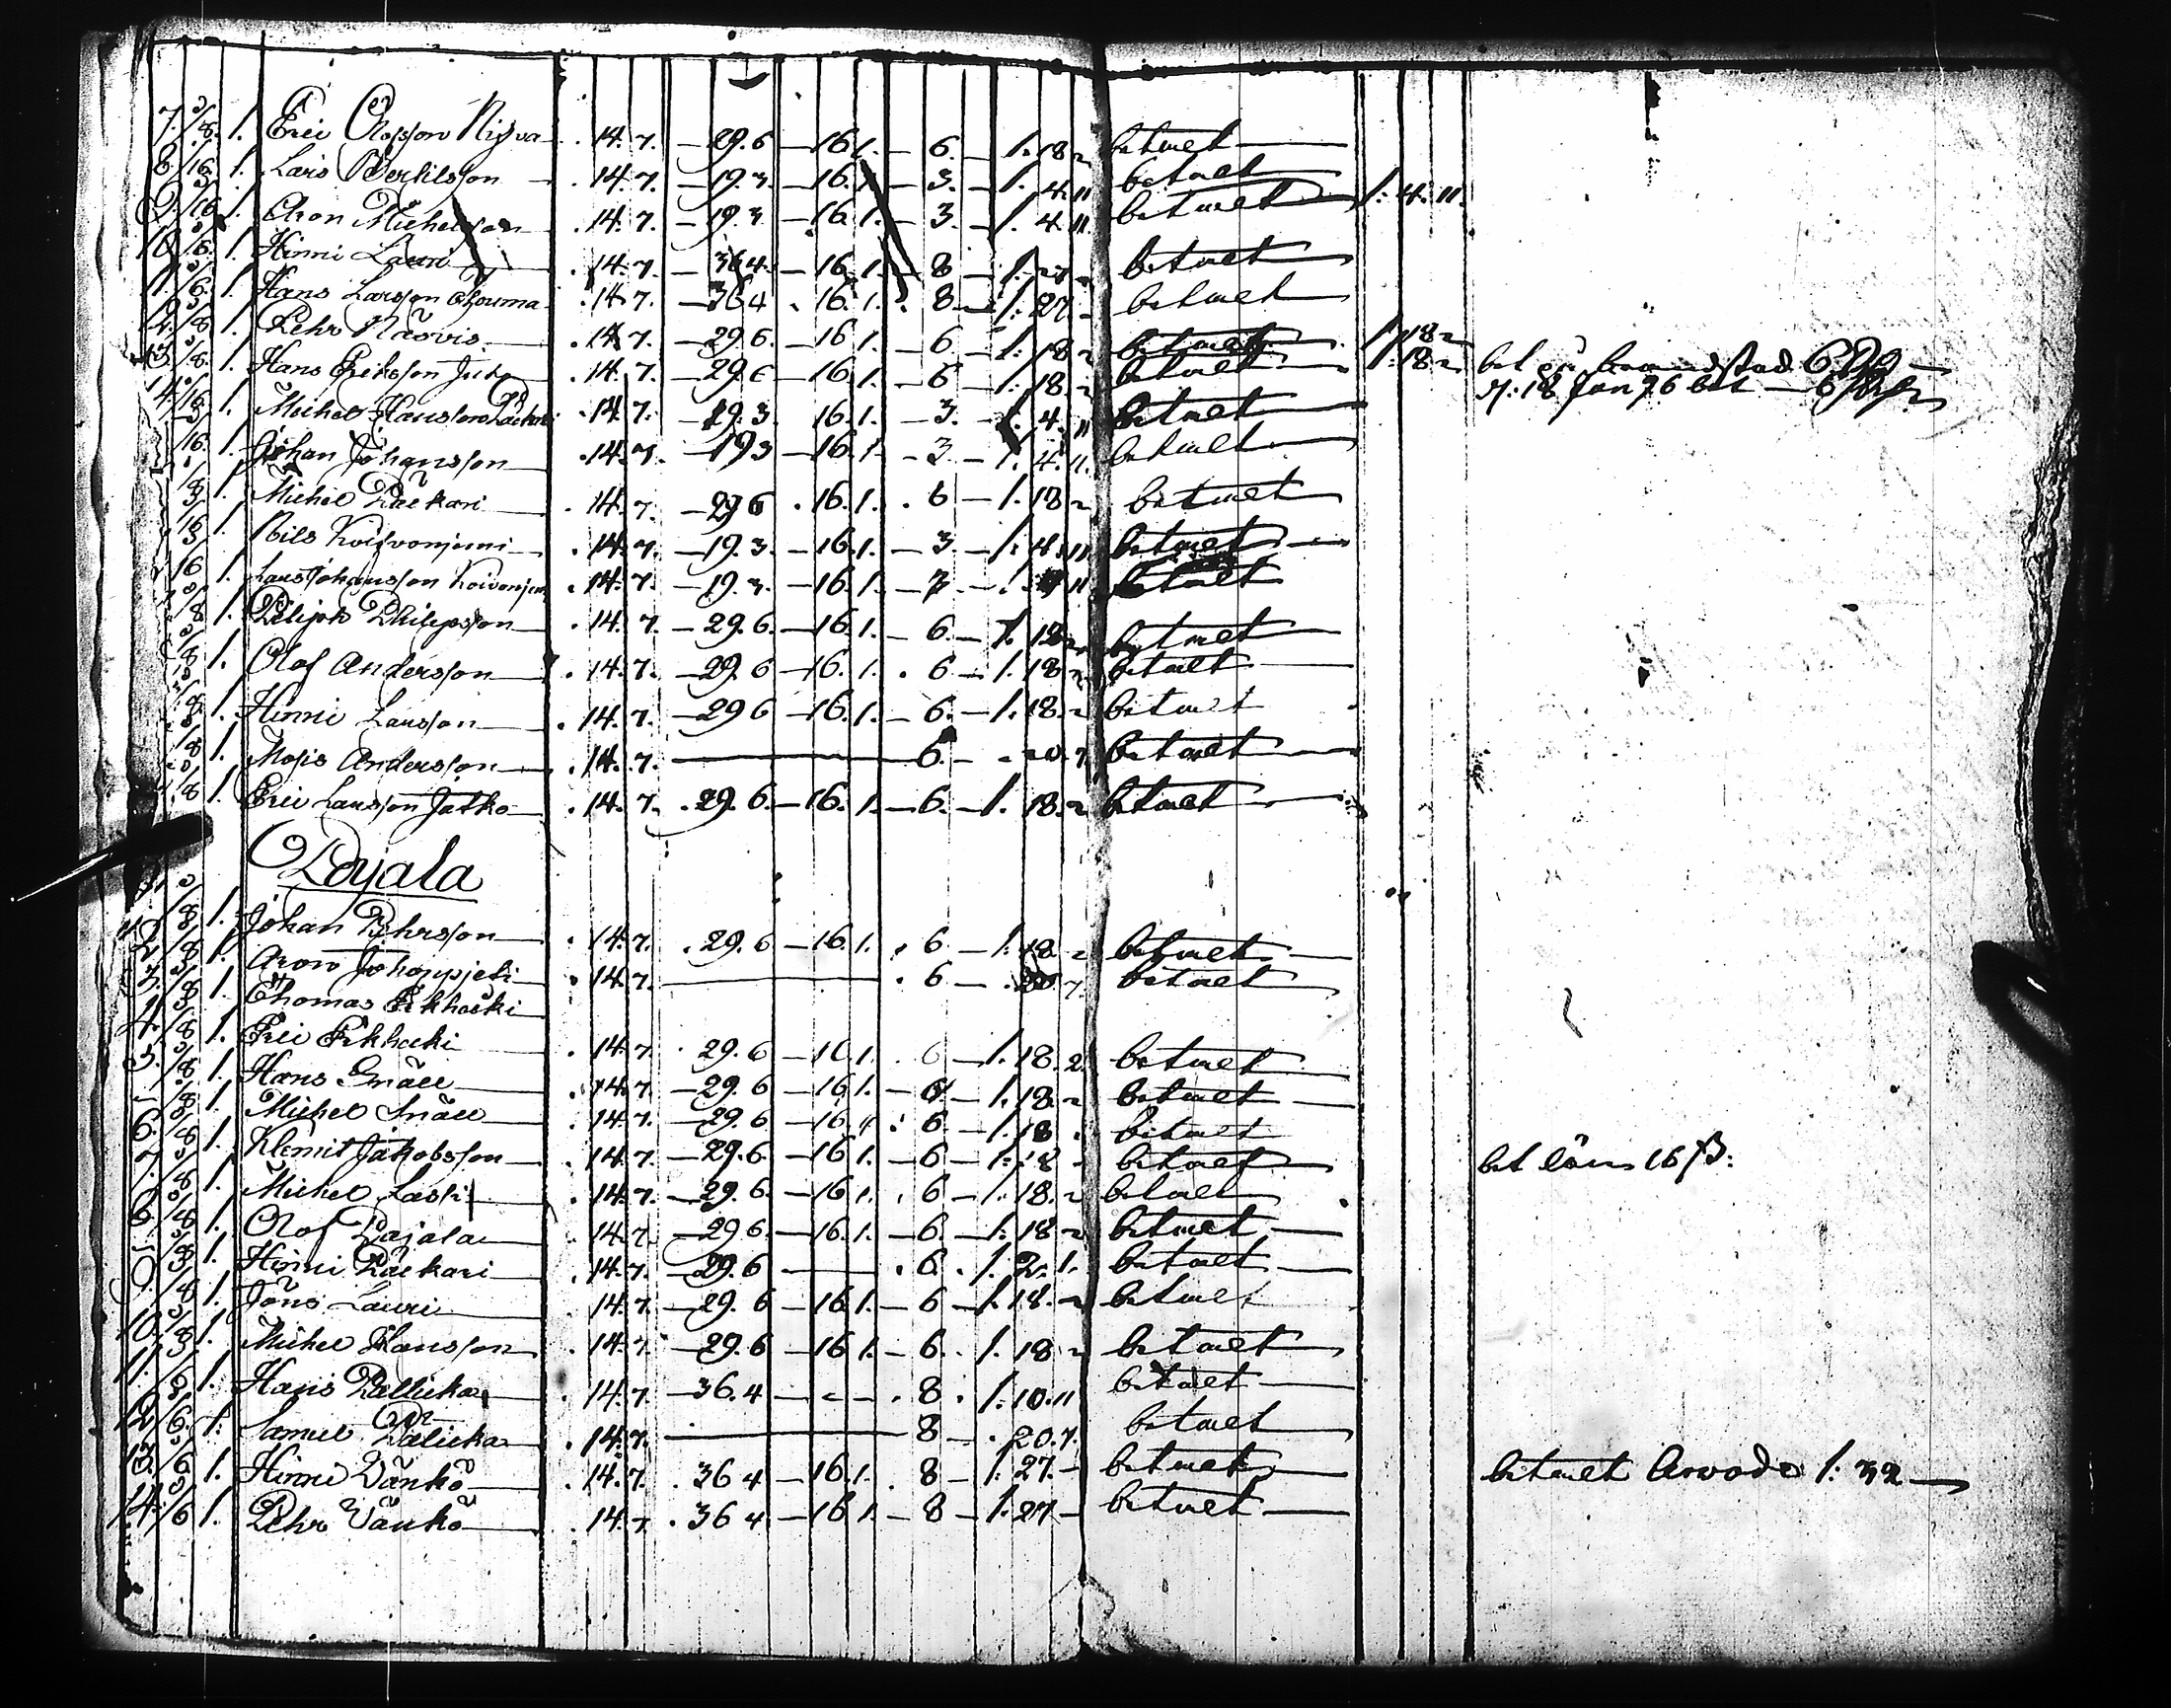 7. 3/8. 1. Eric Olofsson Niʃva . 14. 7. — 29. 6 — 16. 1. — 6. — 1. 18. 2 betalet
8. 3/16. 1. Lars Bertilsson . 14. 7. — 19. 3. — 16. 1. — 3. — 1. 4. 11 betalet
9. 3/16. 1. Aron Michelsson . 14. 7. — 19. 3 — 16. 1. — 3. — 1. 4. 11. betalet 1: 4. 11.
10. 3/6. 1. Hinni Lauri . 14. 7. — 36 4. — 16. 1. — 8 — 1. 27. — betalet
11. 3/6. 1. Hans Larsson . 14. 7. — 36 4 . 16. 1. . 8 — 1. 27. — betalet
12. 3/8 1. Pehr Näsvis . 14. 7. — 29. 6. — 16 1. — 6. — 1. 18. 2 betalet 1. 18. 2
13. 3/8. 1. Hans Eriksson Juto . 14. 7. — 29. 6 — 16 1. — 6 — 1. 18. 2 betalet 1. 18. 2 bet
14. 3/16 1. Michel Hansson Päckari . 14. 7. — 19. 3. 16. 1. — 3. — 1. 4. 11 betalet d. 18 Jan 76 bet — 6
3/16. 1. Johan Johansson . 14. 7. — 19 3 — 16. 1. — 3 — 1. 4. 11. betalet
3/8 1. Michel Päckari . 14. 7. — 29 6 . 16. 1. . 6 — 1. 18. 2 betalet
3/16 1. Nils Koifvonjemi . 14. 7. — 19. 3. — 16. 1. — 3. — 1. 4. 11 betalet
3/16 1. Lars Johansson Koivonjem . 14. 7. — 19. 3. — 16. 1. — 3 — 1. 4 11 betalet
3/8 1. Philip Philipsson . 14. 7. — 29. 6. — 16. 1. — 6. — 1. 18. 2 betalet
3/8 1. Olof Andersson . 14. 7. — 29. 6 — 16. 1. . 6. — 1. 18. 2 betalet
3/8. 1. Hinni Larsson . 14. 7. — 29 6 — 16. 1. — 6. — 1. 18. 2 betalet
3/8 1. Mosis Andersson . 14. 7. — 6. — . 20. 7. betalet
3/8 1. Eric Larsson Jatko . 14. 7. . 29. 6. — 16. 1. — 6. — 1. 18. 2 betalet
Pajala
1. 3/8 1. Johan Pehrsson . 14. 7. . 29. 6 — 16. 1. . 6. — 1. 18 2 betalet
2. 3/8 1. Aron . 14. 7. — . 6 — . 20 7. betalet
3. 3/8 1 Thomas Erkhecki
4. 3/8 1. Eric Erkhecki . 14. 7. . 29. 6 — 16 1. . 6 — 1. 18. 2 betalet
5. 3/8 1. Hans Snäll . 14. 7. — 29. 6 — 16 1. — 6 — 1. 18. 2 betalet
3/8 1. Michel Snäll . 14. 7. — 29. 6 — 16. 1 . 6. — 1. 18 . betalet
6. 3/8 1. Klemit Jakobsson . 14. 7. — 29. 6. — 16 1. — 6 — 1. 18 — betalet bet lön 16 ß:
7. 3/8 1. Michel Laski . 14. 7. — 29. 6. — 16 1. . 6 — 1. 18. 2 betalet
8. 3/8 1. Olof Pajala . 14. 7. — 29 6. — 16. 1. — 6. — 1. 18 2 betalet
3/8 1. Hinni Päckari . 14. 7. — 29. 6 — . 6. . 1. 2. 1. betalet
9. 3/8 1. Jöns Lauri . 14. 7. — 29. 6 — 16 1. — 6 — 1. 18. — 2 betalet
10. 3/8 1. Michel Hansson . 14. 7. . 29. 6 — 16 1. — 6. . 1. 18 2 betalet
11. 1. Hans . 14. 7. — 36. 4 — — . 8 . 1. 10. 11 betalet
12. 3/6. 1. Samuel . 14. 7. — 8 — . 20. 7. betalet
13. 3/6 1. Hinni Vänkö . 14. 7. . 36 4 — 16. 1. . 8 — 1. 27. — betalet betalet Arvode 1: 32
14. 3/6 1. Pehr Vänkö . 14. 7 . 36 4 — 16 1. — 8 — 1. 27 — betalet